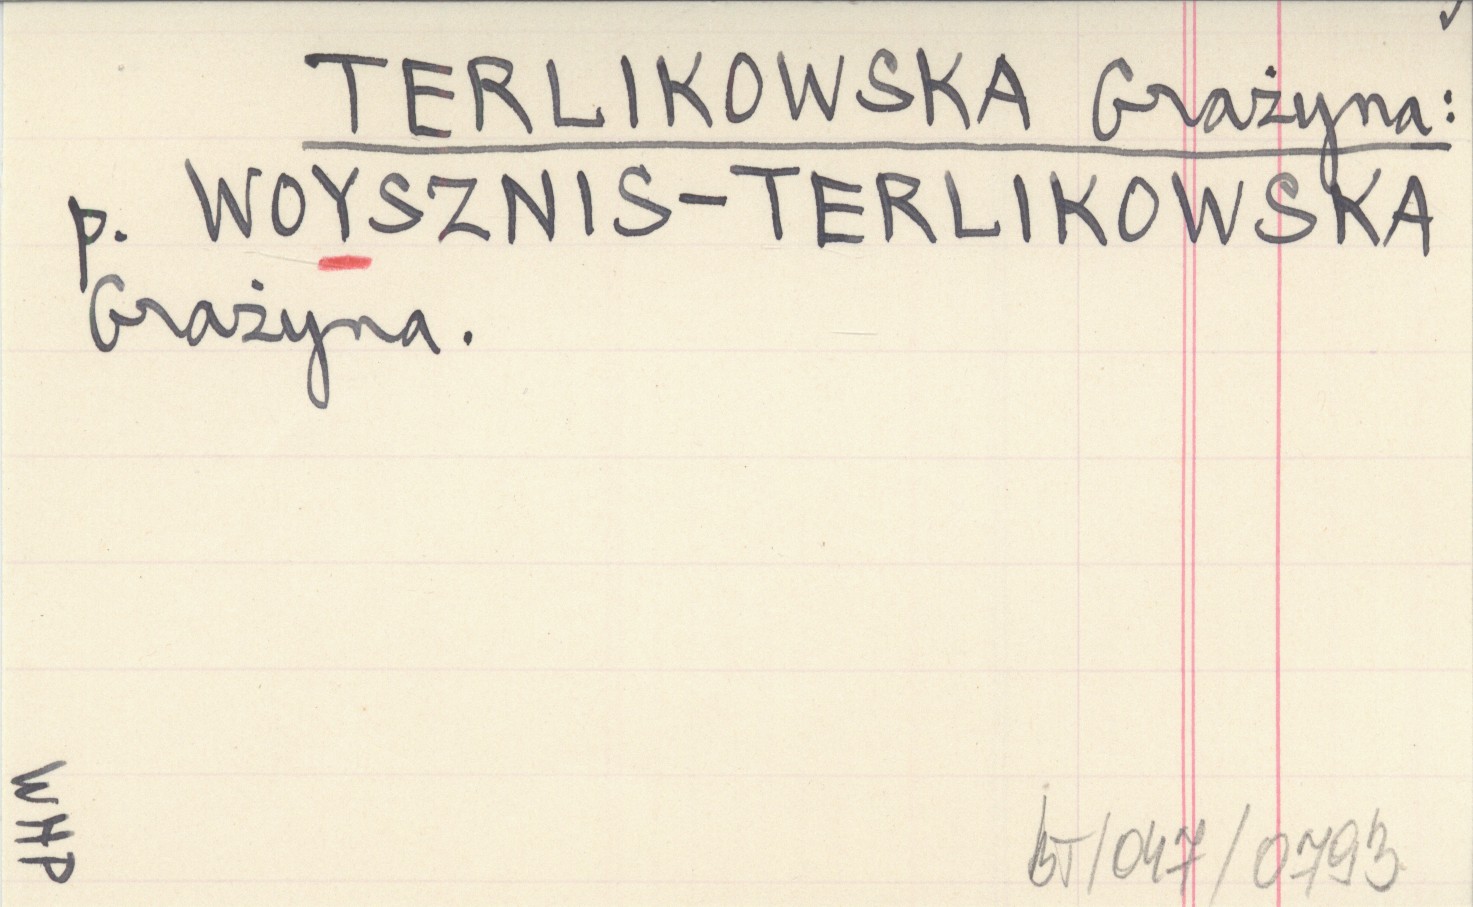 TERLIKOWSKA Grażyna:
p. WOYSZNIS-TERLIKOWSKA
Grażyna.
WHP
BT/047/0793